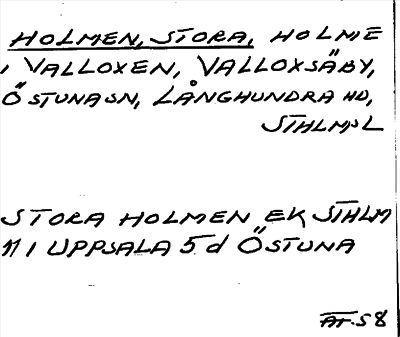 HOLMEN, STORA, HOLME
I VALLOXEN, VALLOXSÄBY,
ÖSTUNA SN, LÅNGHUNDRA HD,
STHLMSL
STORA HOLMEN EK STHLM
11 I UPPSALA 5 d ÖSTUNA
ÄT. 58